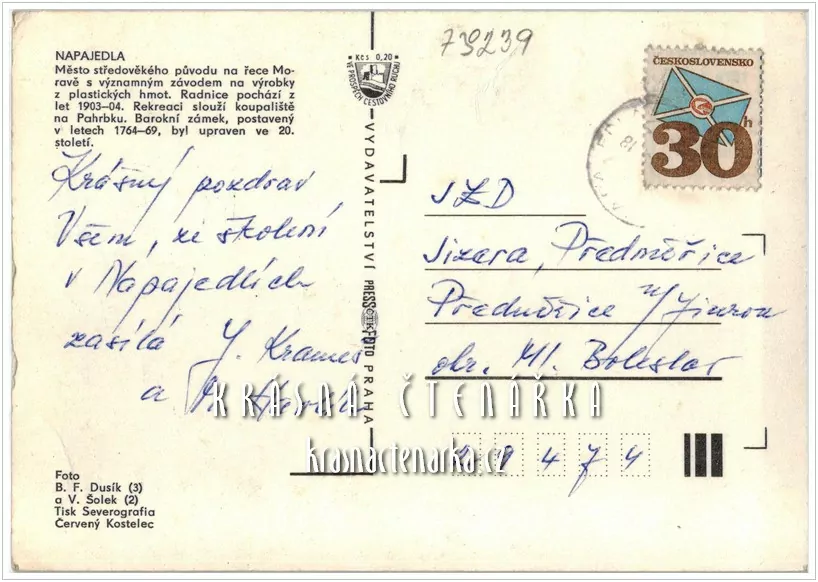 739239
NAPAJEDLA
Město středověkého původu na řece Mo-
ravě s významným závodem na výrobky
z plastických hmot. Radnice pochází z
let 1903–04. Rekreaci slouží koupaliště
na Pahrbku. Barokní zámek, postavený
v letech 1764–69, byl upraven ve 20.
století.
Krásný pozdrav
Všem, ze školení
v Napajedlích
zasílá J. Krameš
a M.
Foto
B. F. Dusík (3)
a V. Šolek (2)
Tisk Severografia
Červený Kostelec
Kčs 0,20
VE PROSPĚCH CESTOVNÍHO RUCHU
VYDAVATELSTVÍ PRESSFOTO PRAHA
ČTK
ČESKOSLOVENSKO
30h
JZD
Jizera, Předměřice
Předměřice n/Jizerou
okr. Ml. Boleslav
29474
KRÁSNÁ ČTENÁŘKA
krasnactenarka.cz